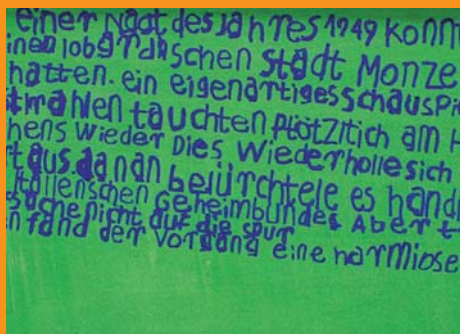 einer Nagt des Jahres 1949 konn
inen lobardischen Stadt Monze
hatten. ein eigenartiges schauspi
strahlen tauchten plötzltich am H
hens wieder Dies wiederholle sich
t aus. da nan befürchtele es hand
italienschen Geheimbundes Abert
suche nicht auf die spur
n fand der Vorgang eine harmlose